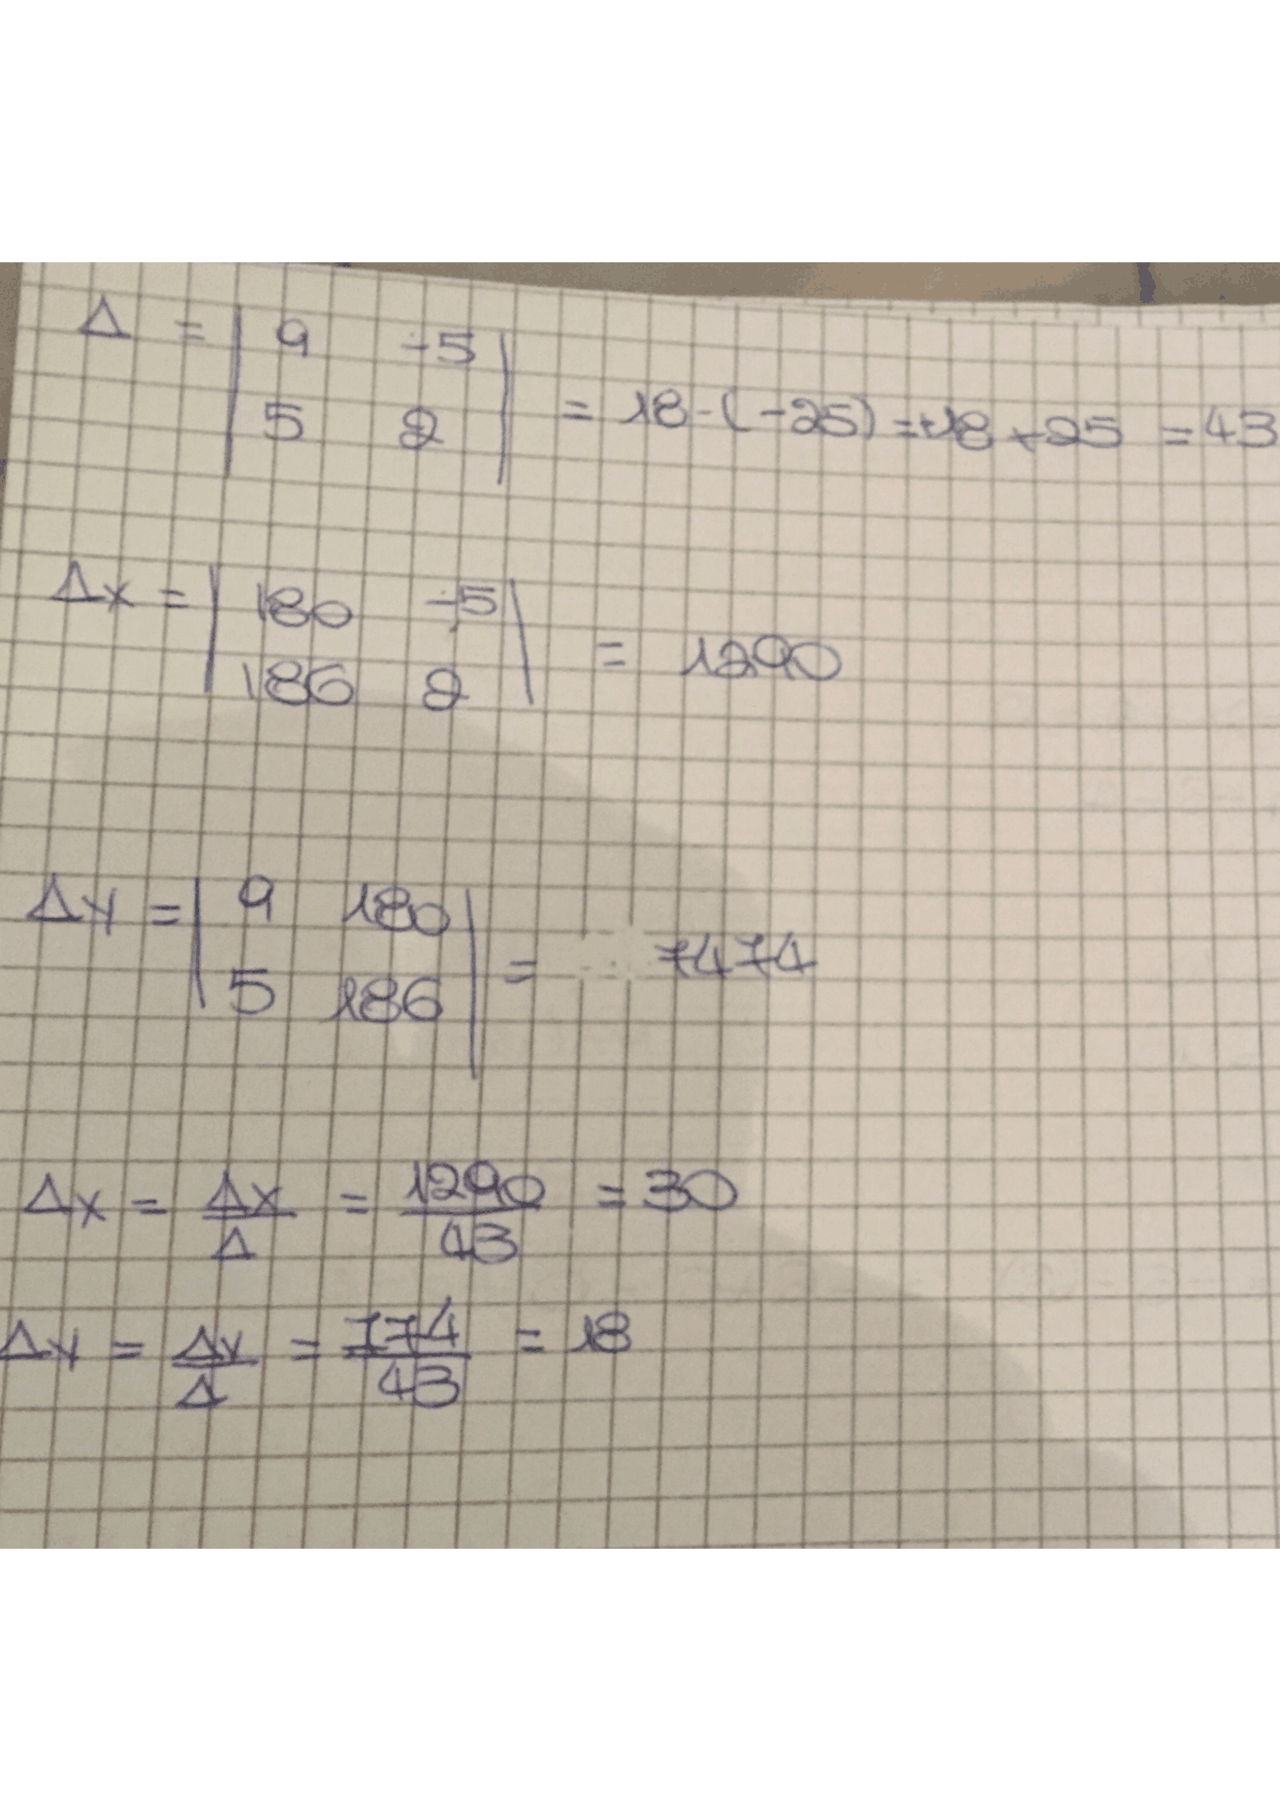 Δ = | 9 -5 |
| 5 2 | = 18-(-25) =+18+25 =43
Δx = | 180 -5 |
| 186 2 | = 1290
Δy = | 9 180 |
| 5 186 | = 7474
Δx = Δx/Δ = 1290/43 = 30
Δy = Δy/Δ = 774/43 = 18